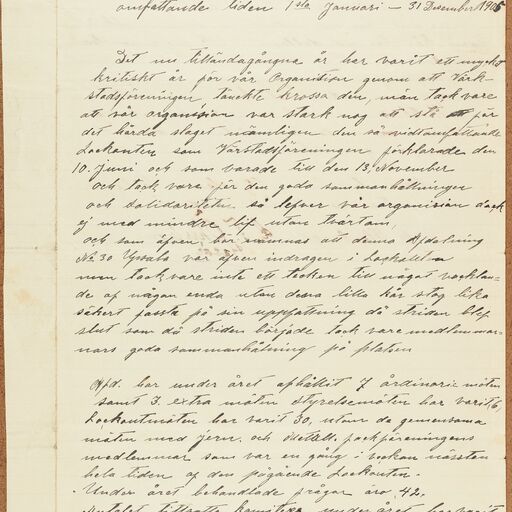 omfattande tiden 1sta Januari — 31 December 1905
Det nu tilländagångna år har varit ett mycket
kritiskt år för vår Organistion genom att Värk-
stadsföreningen tänckte krossa den, män tack vare
att vår organision var stark nog att stå för
det hårda slaget nämligen den så vidtomfattande
Lockouten som Värstadsföreningen förklarade den
10. Juni och som varade till den 13, November
och tack vare för den goda sammanhållningen
och solidariteten så lefver vår organision dock
ej med mindre lif utan tvärtom,
och som äfven bör nämnas att denna Afdelning
No 30 Upsala var äfven indragen i Lockauten
men tack vare inte ett tecken till något vacklan-
de af någon enda utan denna lilla kår stog lika
säkert fasta på sin uppfattning då striden blef
slut som då striden började tack vare medlemmar-
nars goda sammanhålning på platsen
Afd. har under året afhållit 7 årdinarie möten
samt 3. extra möten styrelsemöten har varit 6,
Lockoutmöten har varit 30, utom de gemensama
möten med Jern. och Metall. fackföreningens
medlemmar som var en gång i veckan nästen
hela tiden af den pågående Lockouten.
Under året behandlade frågor äro 42.
Antalet tillsatta komiteer under året har varit